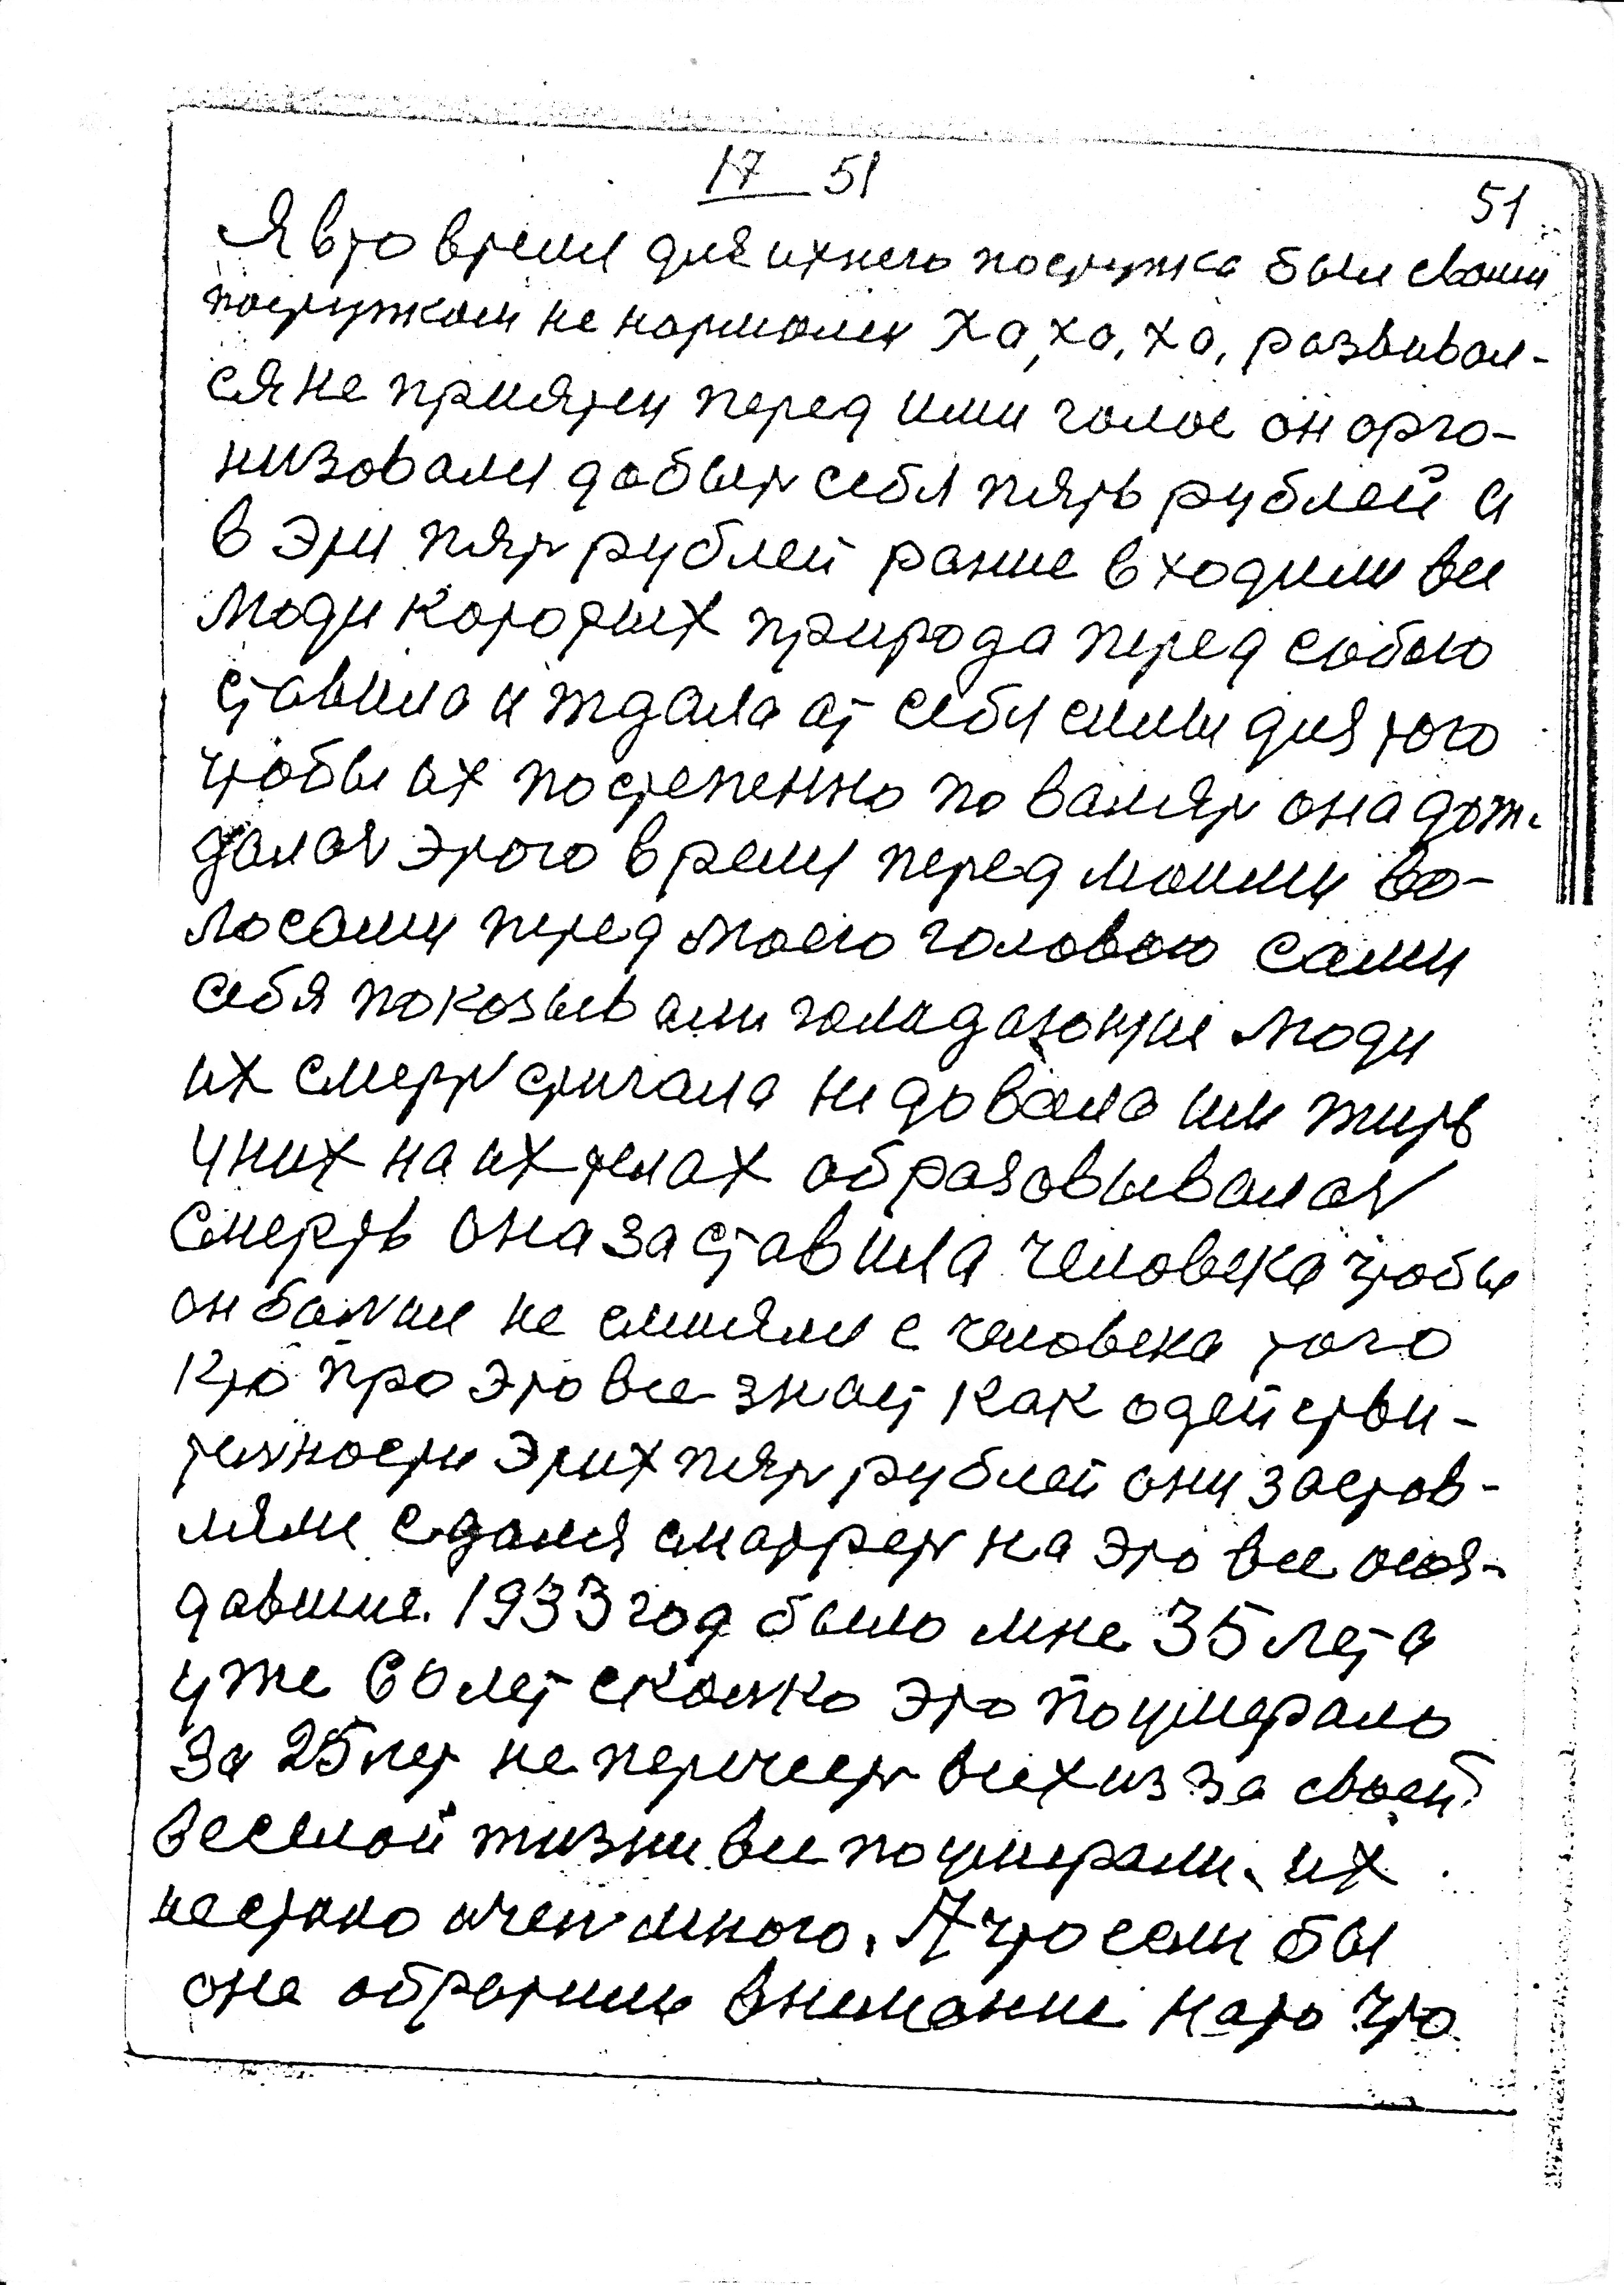 17 51
51
Я в то время для ихнего поступка был своим
поступком не нормалн Ха, ха, ха, развивал-
ся не приятен перед ими голос он орга-
низовали добыть себя пять рублей а
в эти пять рублей ранше входили все
люди которых природа перед собою
ставила и ждала от себя силы для того
чтобы их постепенно повалять она дож-
далась этого время перед моими во-
лосами перед моею головою сами
себя показывали голадающие люди
их смерть стигала не довала им жить
у них на их телах образовывалась
смерть она заставила человека чтобы
он болше не смиялся с человека того
кто про это все знает как о действи-
телности этих пять рублей они застав-
ляли сдаля сматреть на это все
1933 год было мне 35 лет а
уже 60 лет сколко это поумерало
за 25 лет не перечесть всех из за своей
веселой жизни все поумерали, их
нестало очень много. А что если бы
они обратили внимание на то что